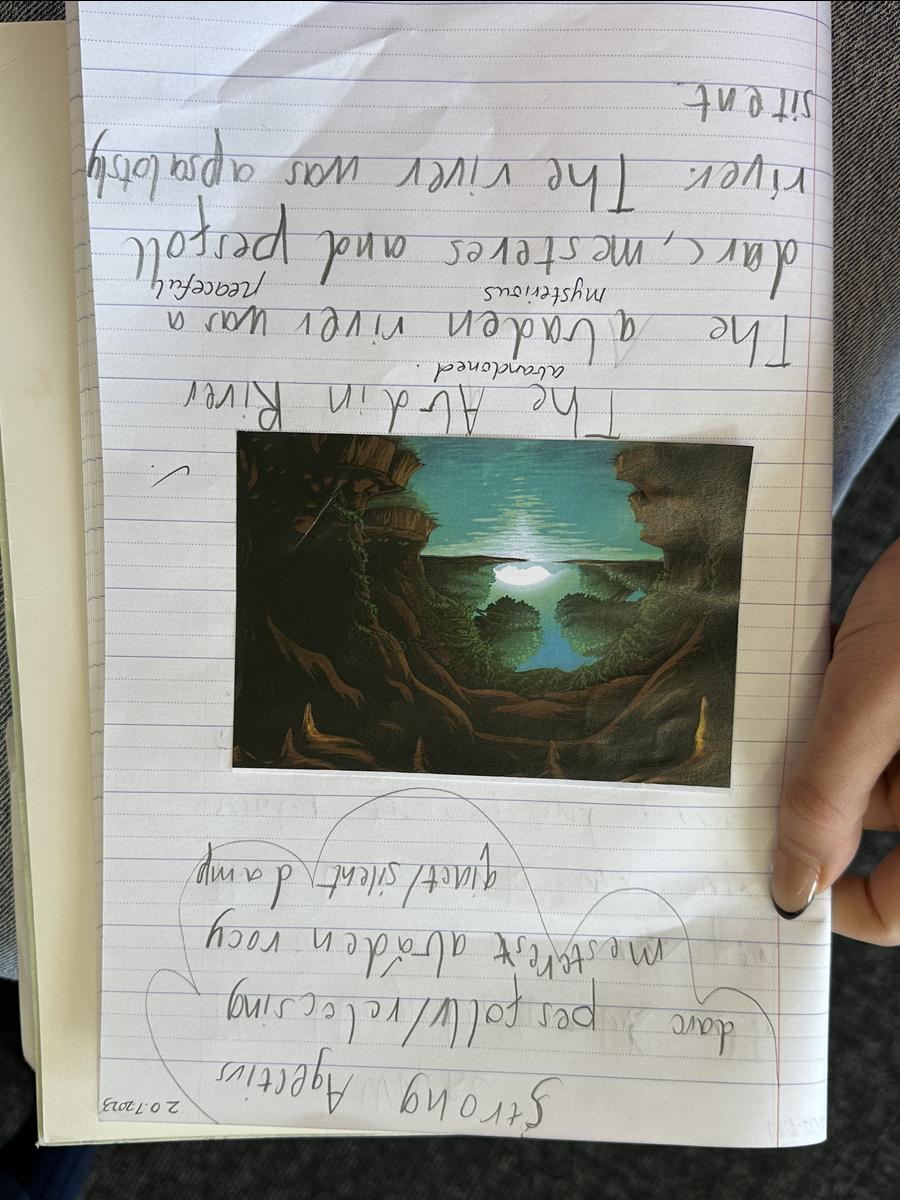 20.7.2023
Strong Agectivs
darc pesfollw/relecsing
mesterest abaden rocy
qiuct/silent damp
The Abdin River
abandoned.
The abaden river was a
mysterious peaceful
darc, mesteres and pesfoll
river. The river was apsalotsly
silent.